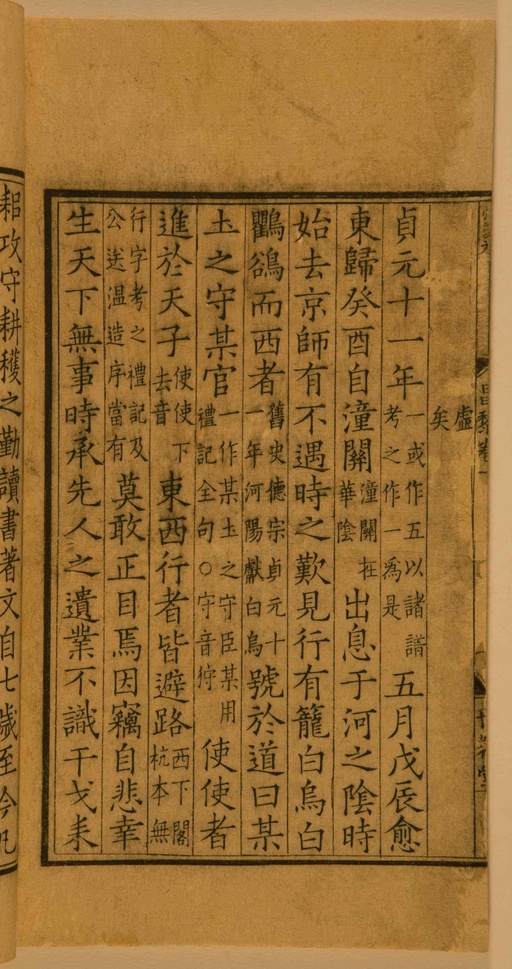 昌黎卷一
虛
矣
貞元十一年一或作五以諸譜考之作一爲是五月戊辰愈
東歸癸酉自潼關潼關在華陰出息于河之陰時
始去京師有不遇時之歎見行有籠白烏白
鸜鵒而西者舊史德宗貞元十一年河陽獻白烏號於道曰某
土之守某官一作某土之守臣某用禮記全句○守音狩使使者
進於天子使使下去音東西行者皆避路西下閣杭本無
行字考之禮記及公送溫造序當有莫敢正目焉因竊自悲幸
生天下無事時承先人之遺業不識干戈耒
耜攻守耕穫之勤讀書著文自七歲至今凡